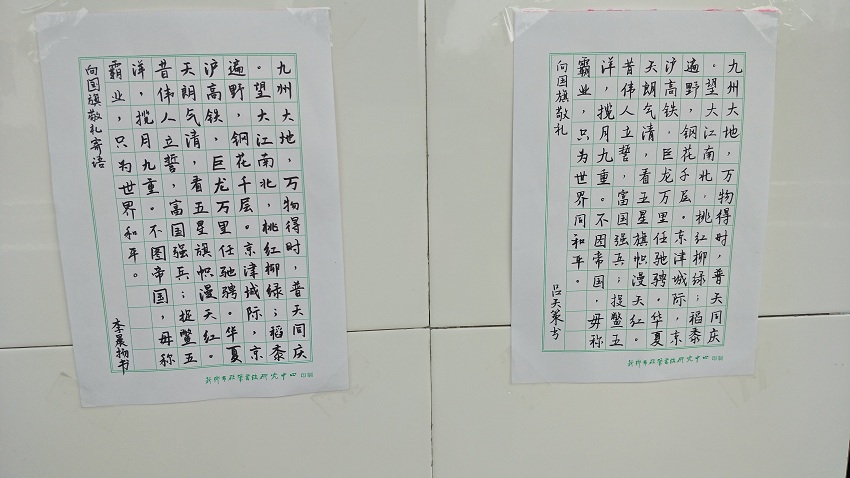 九州大地,万物得时,普天同庆
。望大江南北,桃红柳绿;稻黍
遍野,钢花千层。京津城际,京
沪高铁,巨龙万里任驰骋。华夏
天朗气清,看五星旗帜漫天红。
昔伟人立誓,富国强兵;捉鳖五
洋,揽月九重。不图帝国,毋称
霸业,只为世界和平。
向国旗敬礼寄语
李晨扬书
新乡市硬笔书法研究中心 印制
九州大地,万物得时,普天同庆
。望大江南北.桃红柳绿;稻黍
遍野,钢花千层。京津城际,京
沪高铁,巨龙万里任驰骋。华夏
天朗气清,看五星旗帜漫天红。
昔伟人立誓,富国强兵;捉鳖五
洋,揽月九重。不图帝国.毋称
霸业,只为世界同和平。
向国旗敬礼
吕天策书
新乡市硬笔书法研究中心 印制